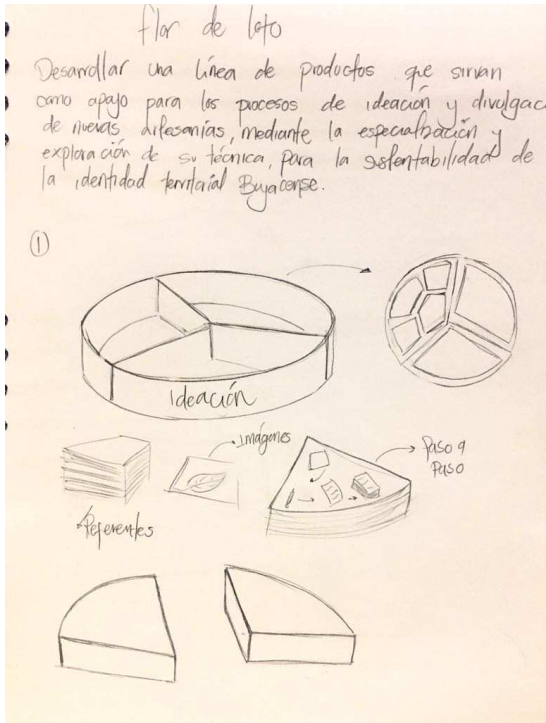 flor de loto
Desarrollar una línea de productos que sirvan
como apoyo para los procesos de ideación y divulgac
de nuevas artesanías, mediante la especialización y
exploración de su técnica, para la sustentabilidad de
la identidad territorial Boyacense.
1
Ideación
Imágenes
Paso a
Paso
Referentes